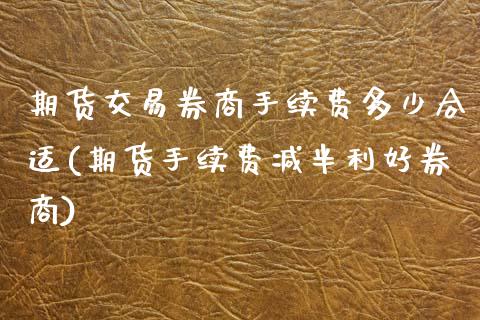 期货交易券商手续费多少合
适(期货手续费减半利好券
商)